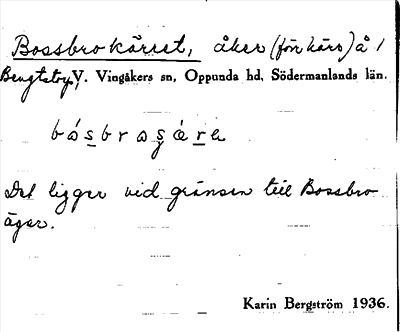 Bossbrokärret, åker (förr kärr) å /
Bengtstorp, V. Vingåkers sn, Oppunda hd, Södermanlands län.
Det ligger vid gränsen till Bossbro-
ägor.
Karin Bergström 1936.